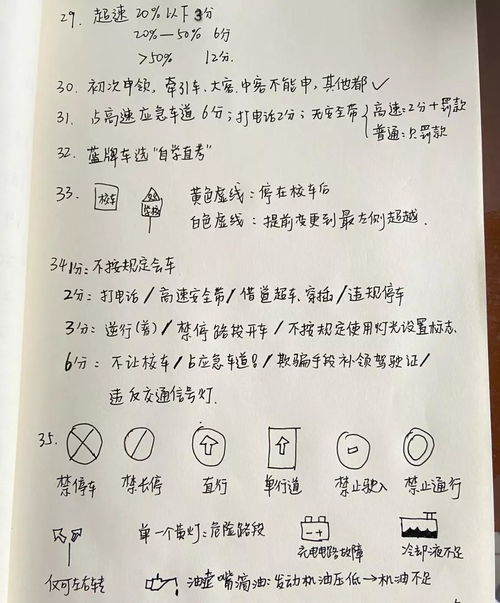 29. 超速 20%以下 3分
20%—50% 6分
>50% 12分.
30. 初次申领, 牵引车、大客、中客不能申, 其他都✓
31. 占高速应急车道 6分; 打电话2分; 无安全带{高速:2分+罚款
普通:只罚款
32. 蓝牌车选"自学直考"
33. 校车 黄色虚线: 停在校车后
学校 白色虚线: 提前变更到最左侧超越.
34. 1分: 不按规定会车
2分: 打电话/高速安全带/借道超车、穿插/违规停车
3分: 逆行(普)/禁停路段开车/不按规定使用灯光设置标志.
6分: 不让校车/占应急车道/欺骗手段补领驾驶证/
违反交通信号灯.
35.
禁停车 禁长停 直行 单行道 禁止驶入 禁止通行
单一个黄灯: 危险路段
仅可左右转 充电电路故障 冷却液不足
油壶嘴滴油: 发动机油压低→机油不足